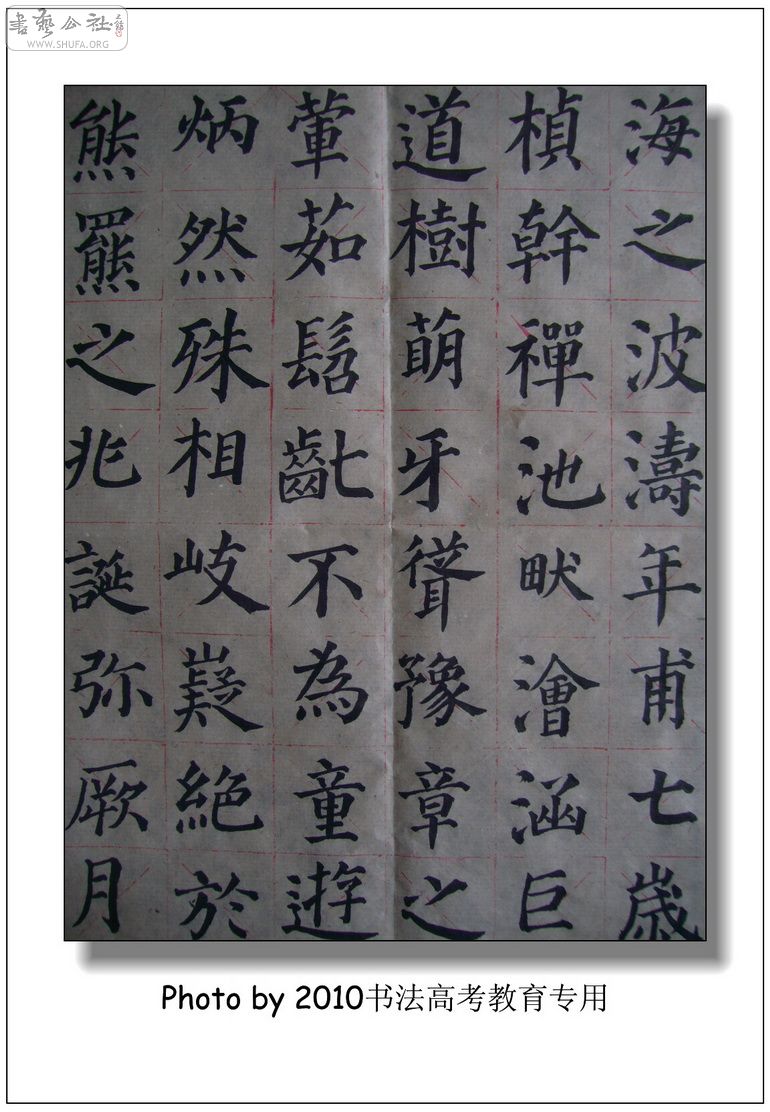 書藝公社
WWW.SHUFA.ORG
熊羆之兆誕弥厥月
炳然殊相岐嶷絶於
葷茹髫齔不為童遊
道樹萌牙聳豫章之
楨幹禪池畎澮涵巨
海之波濤年甫七歲
Photo by 2010书法高考教育专用